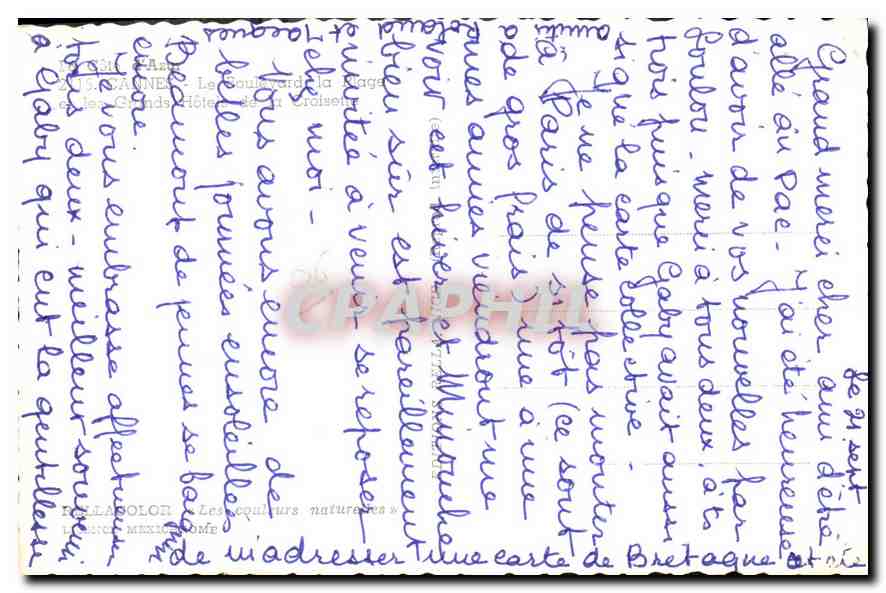 le 21 sept
Grand merci cher ami d'être
allé au Pac- J'ai été heureuse
d'avoir de vos nouvelles par
Loulou. merci à tous deux. à ts
trois puisque Gaby avait aussi
signé la carte collective -
Je ne pense pas monter
à Paris de si tôt (ce sont
de gros frais) une à une
mes amies viendront me
voir cet hiver et Minouche
bien sûr est pareillement
invitée à venir se reposer
chez moi -
Nous avons encore de
belles journées ensoleillées
Beaucoup de jeunes se baignent
encore.
Je vous embrasse affectueusement
tous deux - meilleur souvenir
à Gaby qui eut la gentillesse
de m'adresser une carte de Bretagne et
amitiés
Jacques
La Côte d'Azur
2015. CANNES - Le Boulevard, la Plage
et les Grands Hôtels de la Croisette
BELLACOLOR « Les couleurs naturelles »
LICENCE MEXICHROME
CPAPHIL